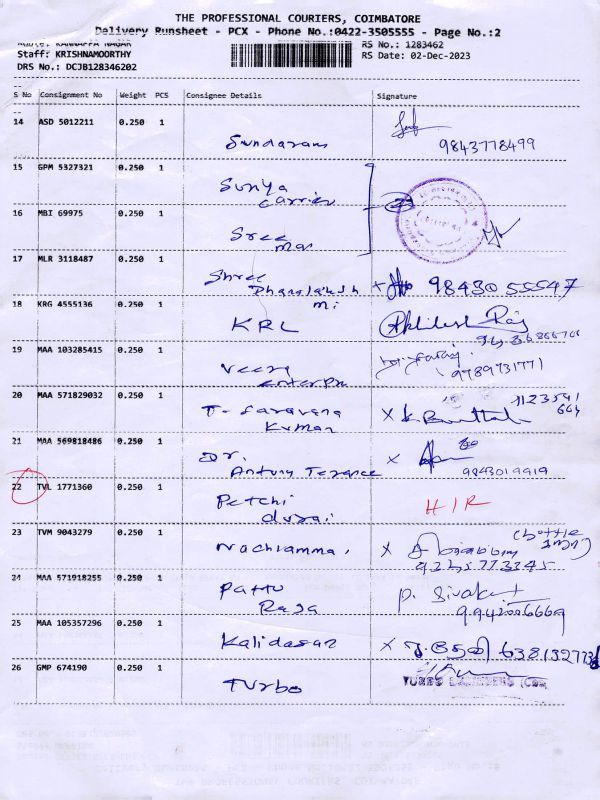 THE PROFESSIONAL COURIERS, COIMBATORE
Delivery Runsheet - PCX - Phone No.:0422-3505555 - Page No.:2
Route: KANNAPPA NAGAR
RS No.: 1283462
Staff: KRISHNAMOORTHY
RS Date: 02-Dec-2023
DRS No.: DCJB128346202
S No Consignment No Weight PCS Consignee Details Signature
14 ASD 5012211 0.250 1
Sundaram 9843778499
15 GPM 5327321 0.250 1
Surya
Carrier
16 MBI 69975 0.250 1
Sree
17 MLR 3118487 0.250 1
Shree
Dhanalaksh
mi
98430 55547
18 KRG 4555136 0.250 1
KRL
Akhilesh Raj
19 MAA 103285415 0.250 1
Veera
9789731771
20 MAA 571829032 0.250 1
T. Saravana
Kumar
21 MAA 569818486 0.250 1
Dr.
Antony Terence
9843019919
22 TVL 1771360 0.250 1
Petchi
durai
H/R
23 TVM 9043279 0.250 1
Nachiammai
9245773345
24 MAA 571918255 0.250 1
Pattu
Raja
P. Sivakumar
25 MAA 105357296 0.250 1
Kalidasan
26 GMP 674190 0.250 1
Turbo